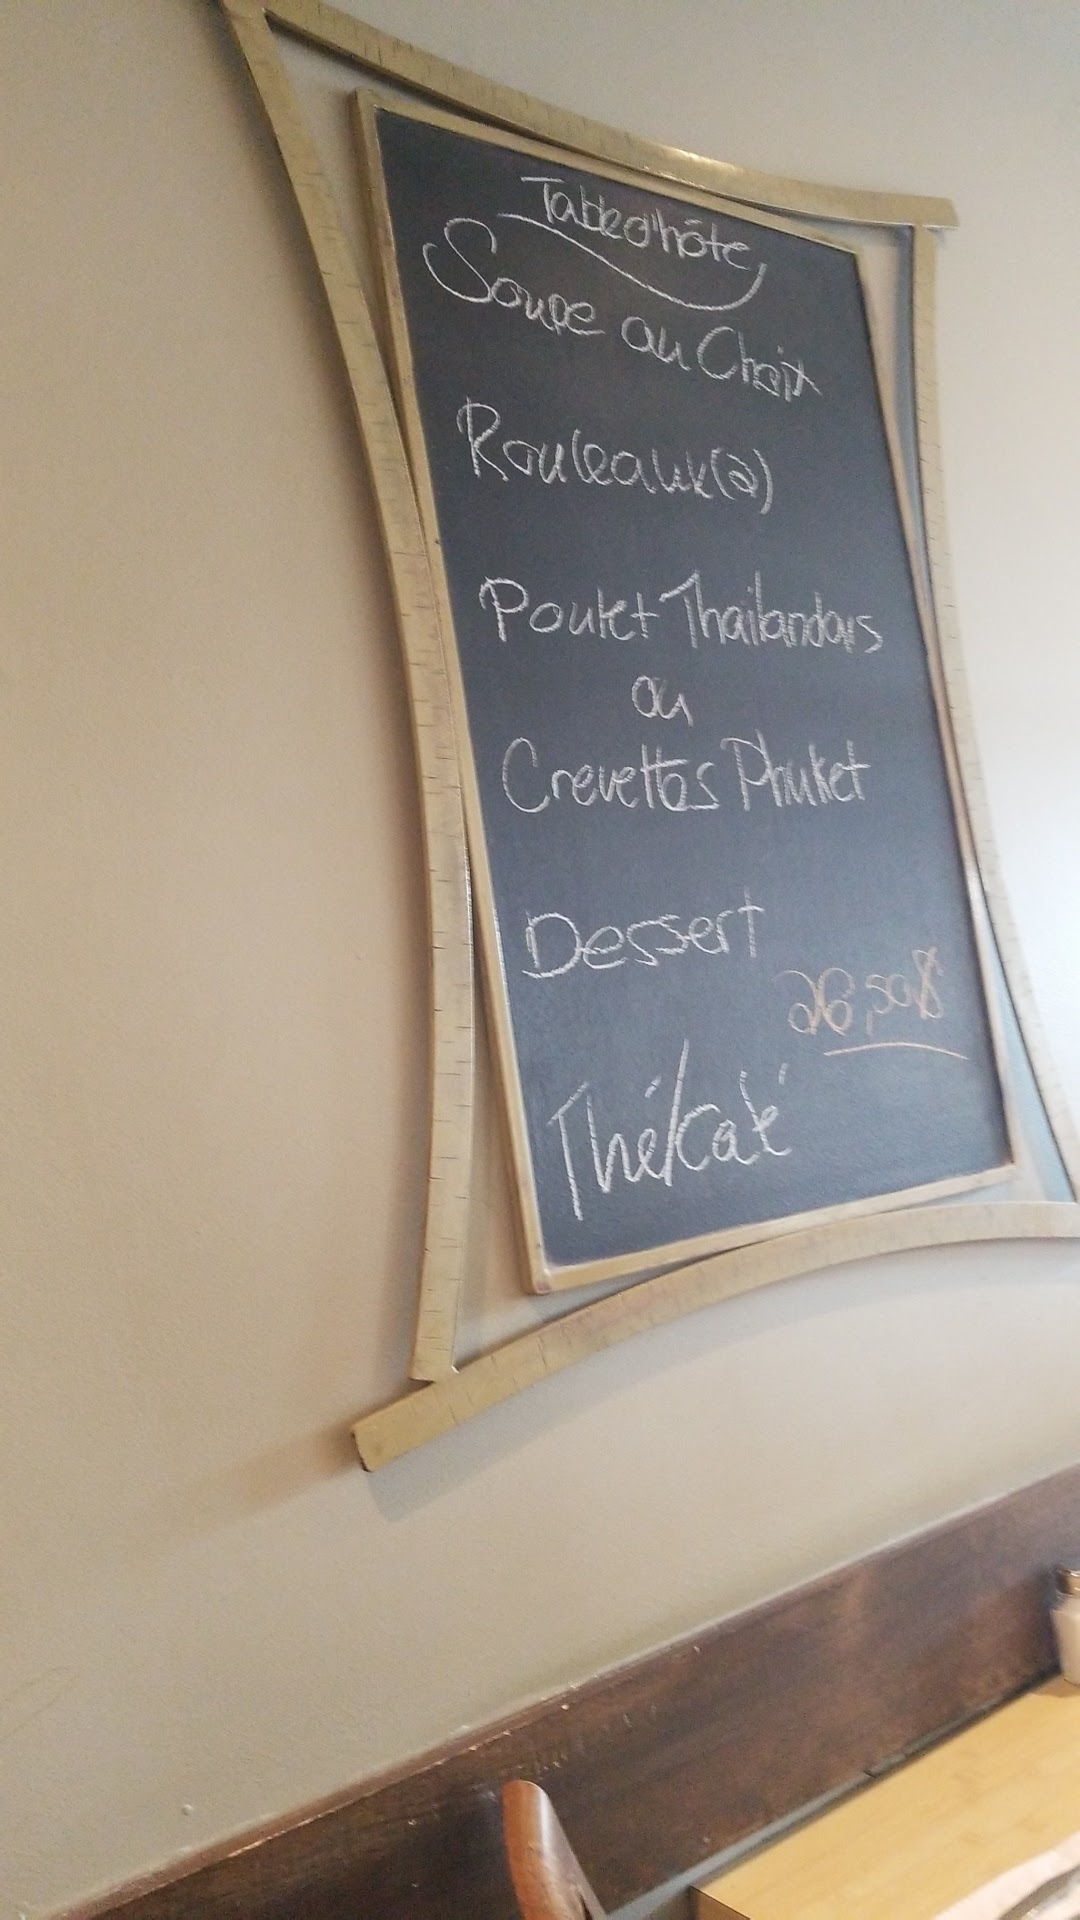 Table d'hôte
Soupe au Choix
Rouleaux(2)
Poulet Thailandais
ou
Crevettes Phuket
Dessert
26,50$
Thé/Café